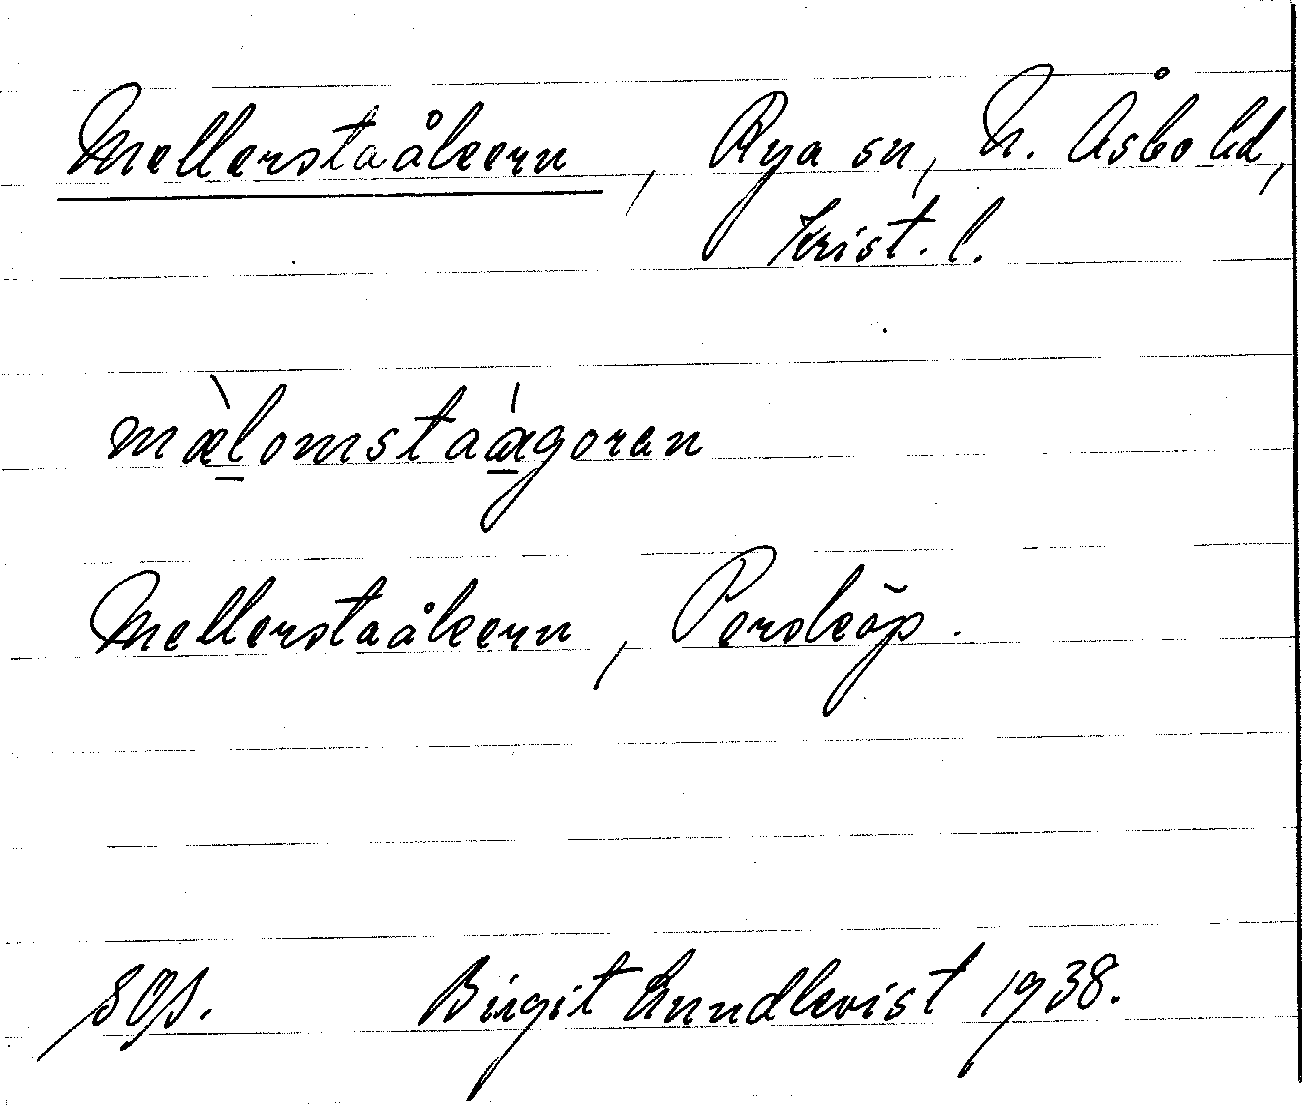 Mellerstaåkern, Rya sn, N. Åsbo hd,
Krist. l.
mæ̀lomstaágoran
Mellerstaåkern, Perslöp.
sgs. Birgit Lundkvist 1938.